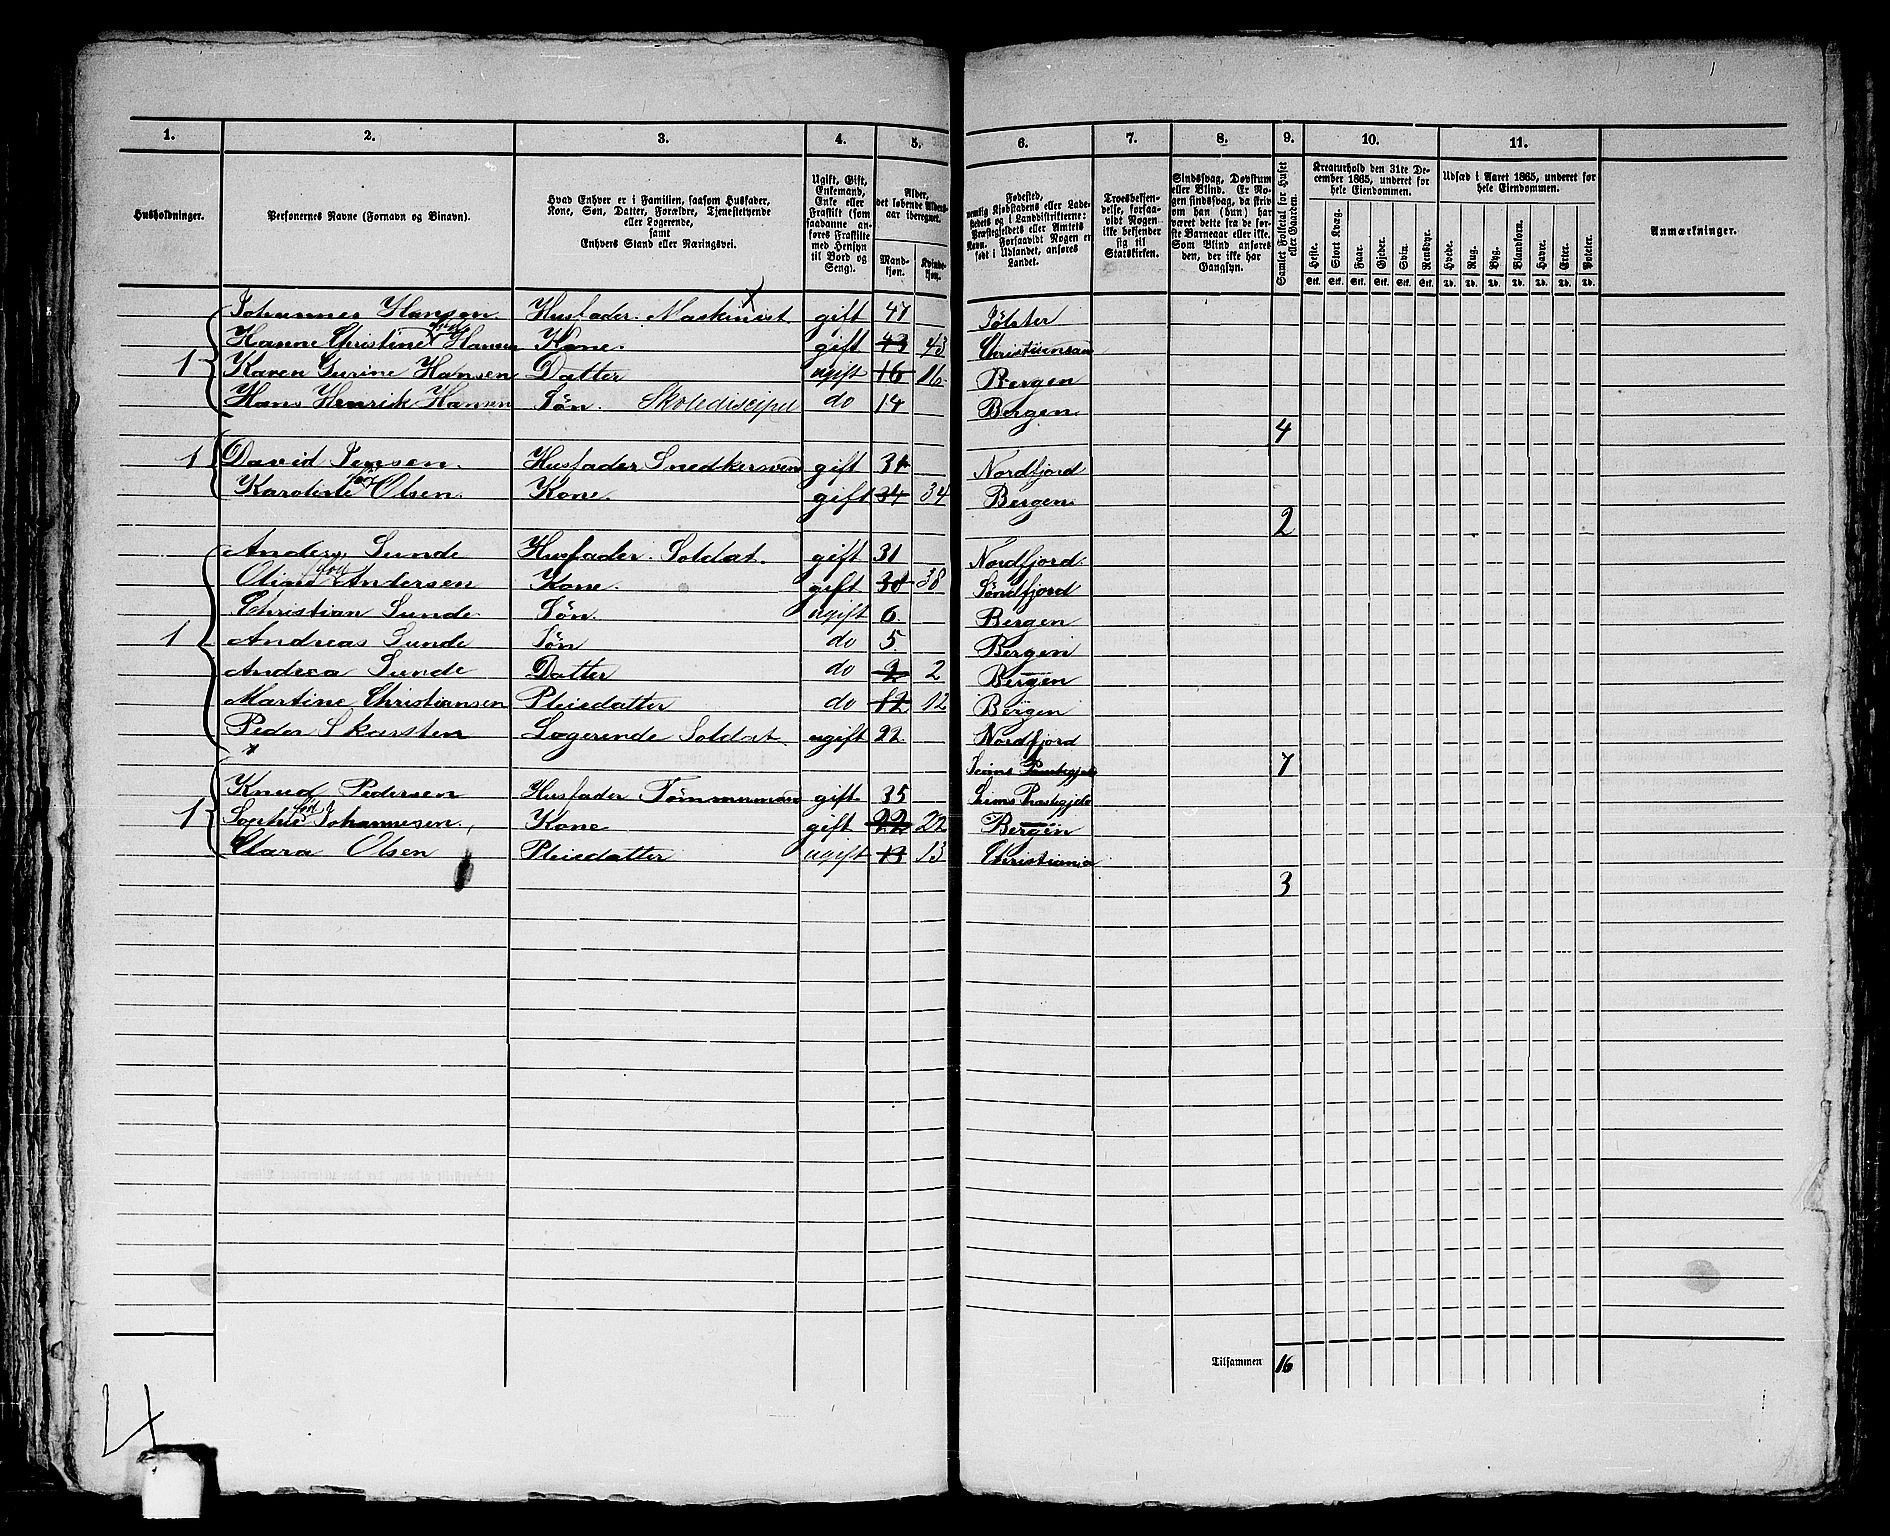 1. 2. 3. 4. 5. 6. 7. 8. 9. 10. 11.
Husholdninger.
Personernes Navne (Fornavn og Binavn).
Hvad Enhver er i Familien, saasom Husfader,
Kone, Søn, Datter, Forældre, Tjenestetyende
eller Logerende,
samt
Enhvers Stand eller Næringsvei.
Ugift, Gift,
Enkemand,
Enke eller
Fraskilt (som
saadanne an-
føres Fraskilte
med Hensyn
til Bord og
Seng).
Alder,
det løbende Alders-
aar iberegnet.
Mand-
kjøn.
Kvinde-
kjøn.
Fødested,
nemlig Kjøbstadens eller Lade-
stedets og i Landdistrikterne:
Præstegjeldets eller Amtets
Navn. Forsaavidt Nogen er
født i Udlandet, anføres
Landet.
Troesbekjen-
delse, forsaa-
vidt Nogen
ikke bekjender
sig til
Statskirken.
Sindssvag, Døvstum
eller Blind. Er No-
gen sindssvag, da skriv
om han (hun) har
været dette fra de før-
ste Barneaar eller ikke.
Som Blind anføres
den, der ikke har
Gangsyn.
Samlet Folketal for Huset
eller Gaarden.
Kreaturhold den 31te De-
cember 1865, underet for
hele Eiendommen.
Heste. Stort Kvæg. Faar. Gjeder. Svin. Rensdyr.
Stk. Stk. Stk. Stk. Stk. Stk.
Udsæd i Aaret 1865, underet for
hele Eiendommen.
Hvede. Rug. Byg. Blandkorn. Havre. Erter. Poteter.
Td. Td. Td. Td. Td. Td. Td.
Anmærkninger.
Johannes Hansen Husfader. Maskinist gift 47 Jølster
Hanne Christine født Hansen Kone. gift 43 43 Christiansan
1 Karen Gurine Hansen Datter ugift 16 16 Bergen
Hans Henrik Hansen Søn. Skoledicipel do 14 Bergen
4
1 David Jensen. Husfader Snedkersvend gift 31 Nordfjord
Karoline født Olsen. Kone gift 34 34 Bergen
2
Anders Sunde Husfader. Soldat. gift 31 Nordfjord
Oline født Andersen Kone. gift 38 38 Søndfjord
Christian Sunde Søn. ugift 6. Bergen
1 Andreas Sunde Søn do 5. Bergen
Andrea Sunde Datter do 2 2 Bergen
Martine Christiansen Pleiedatter do 12 12 Bergen
Peder Skarsten Logerende Soldat ugift 22 Nordfjord
7
Knud Pedersen Husfader Tømmermand gift 35
1 født Johannesen. Kone gift 22 22 Bergen
Clara Olsen Pleiedatter ugift 13 Christiania
3
Tilsammen 16
4